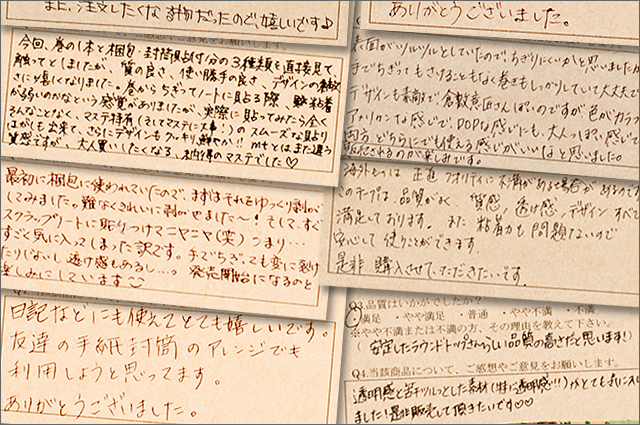 また、注文したくなる物だったので、嬉しいです♪
今回、巻の1本と梱包・封筒貼付分の3種類を直接見て、
触ってとしましたが、質の良さ、使い勝手の良さ、デザインの素敵
さに驚くなりました。巻からちぎってノートに貼る際、粘着
が弱いのかなという感覚がありましたが、実際に貼ってみたら全く
そんなことなく、マステ特有(そしてマステに大事!)のスムーズな貼り
はがしも出来て、さらにデザインもクッキリ、鮮やか!! mtとはまた違う
質感ですが、大人買いしたくなる、お値得のマステでした♡
最初に梱包に使われていたので、まずはそれをゆっくり剥がし
てみました。難なくきれいに剥がせました~! そして、すぐ
スクラップノートに貼りつけマニヤニヤ(笑) つまり…
すごく気に入ってしまった訳です。手でちぎっても変に裂け
たりしないし、透け感もあるし…。発売開始になるのと
楽しみにしています
日記などにも使えてとても嬉しいです。
友達の手紙封筒のアレンジでも
利用しようと思ってます。
ありがとうございました。
ありがとうございました。
表面がツルツルとしていたので、ちぎりにくいかと思いましたが
手でちぎってもさけることもなく巻きもしっかりしていて大丈夫で
デザインも素敵で倉敷意匠さんぽいのですが色がカラフ
アメリカンな感じで、POPな感じにも、大人っぽい感じで
両方、どちらにでも使える感じがいいなと思いました。
販売されるのが楽しみです。
海外もっは 正直 クオリティに不満がある場合があるので
このテープは、品質がよく 質感、透け感、デザインすべて
満足しております。また 粘着力も問題ないので
安心して使うことができます
是非 購入させていただきたいです。
Q3.品質はいかがでしたか?
満足 ・やや満足 ・普通 ・やや不満 ・不満
※やや不満または不満の方、その理由を教えて下さい。
(安定したラウンドトップさんらしい品質の高さだと思います!)
Q4.当該商品について、ご感想やご意見をお願いします。
透明感と苦ツルっとした素材(特に透明感!!)がとても気に入り
ました!是非販売して頂きたいです♡♡